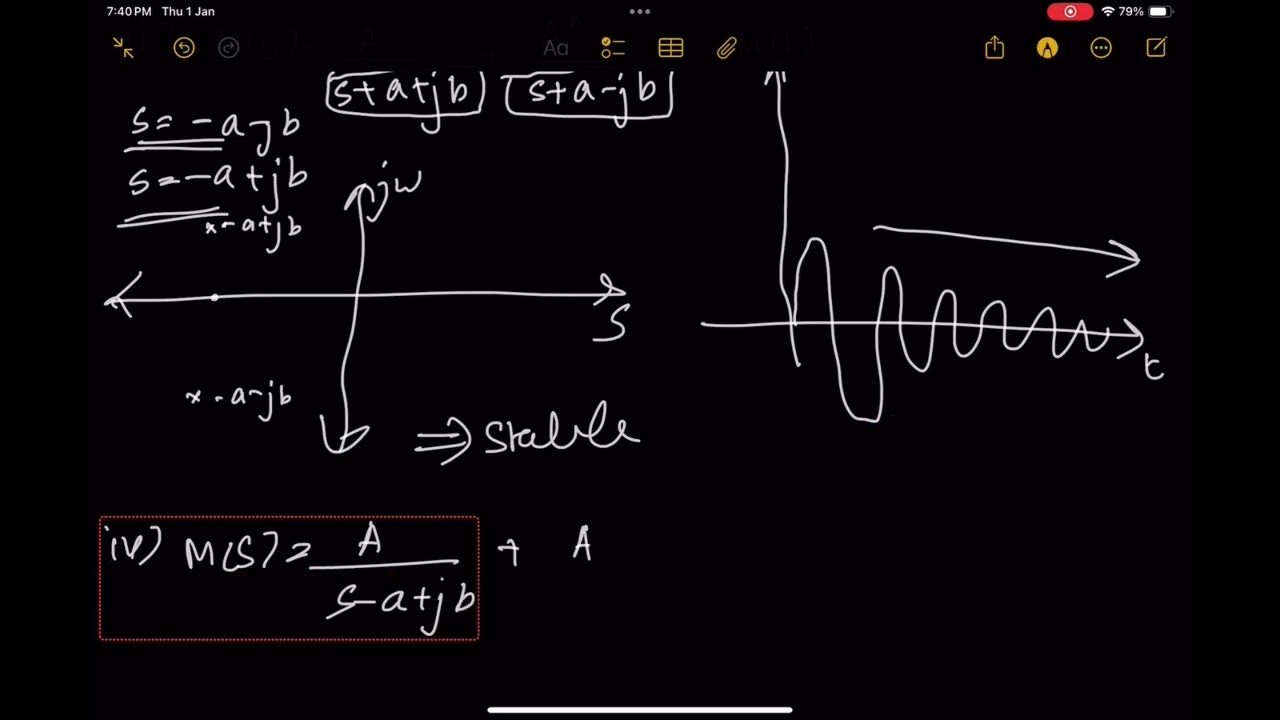 7:40 PM Thu 1 Jan
79%
Aa
s+a+jb s+a-jb
s=-a-jb
s=-a+jb
x-a+jb
jw
S
t
x-a-jb
⇒ Stable
iv) M(S)= A + A
s-a+jb